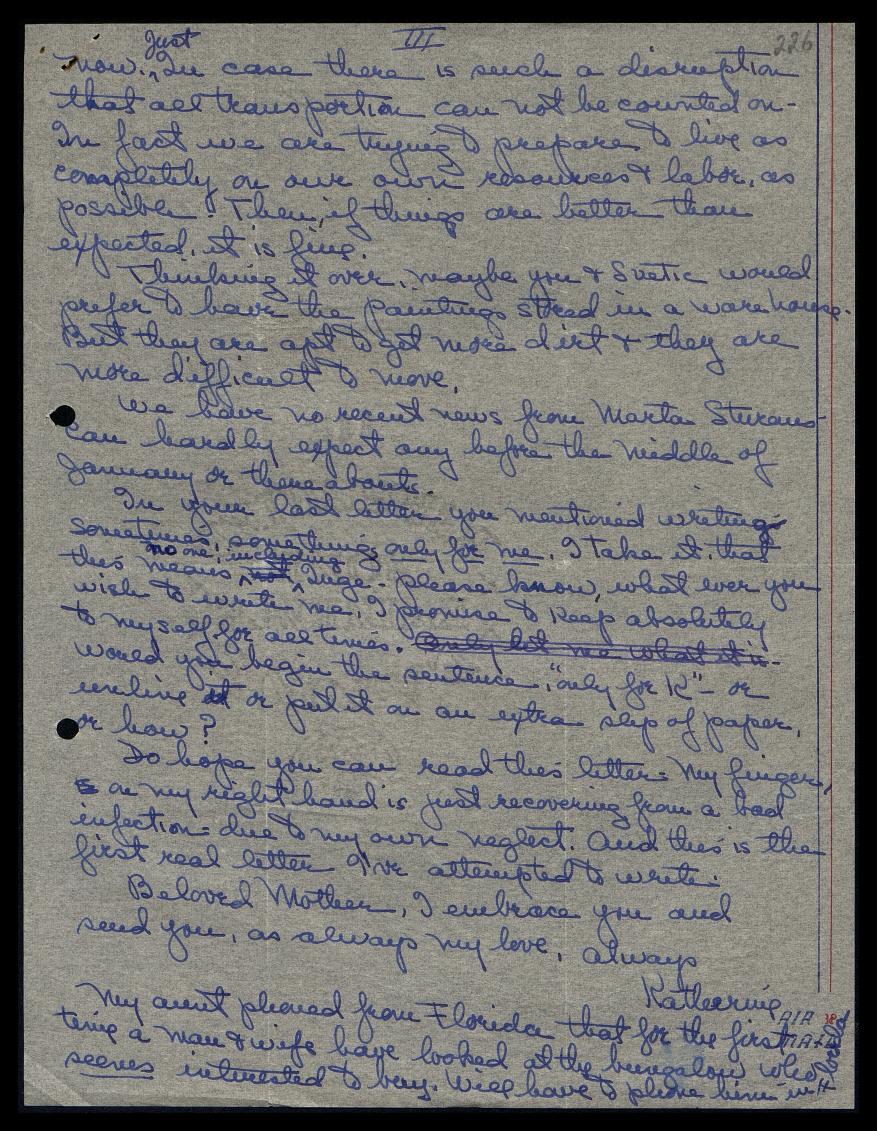 III
226
now. Just In case there is such a disruption
that all transportion can not be counted on-
In fact we are trying to prepare to live as
completely on our own resources & labor, as
possible. Then, if things are better than
expected, it is fine.
Thinking it over, maybe you & Svetic would
prefer to have the paintings stred in a warehouse.
But they are apt to get more dirt & they are
more difficult to move.
We have no recent news from Marta Sturans-
Can hardly expect any before the middle of
January or thereabouts.
In your last letter you mentioned writing
sometimes, something only for me. I take it, that
this means no one, including Inge - please know, what ever you
wish to write me, I promise to keep absolutely
to myself for all times. Only let me what it is-
would you begin the sentence, "only for K" - or
unline it or put it on an extra slip of paper,
or how?
Do hope you can read this letter = My finger,
on my right hand is just recovering from a bad
infection = due to my own neglect. And this is the
first real letter I've attempted to write.
Beloved Mother, I embrace you and
send you, as always my love, always
Katherine
My aunt phoned from Florida that for the first
time a man & wife have looked at the bungalow who
seems interested to buy. Will have to phone him in
Florida